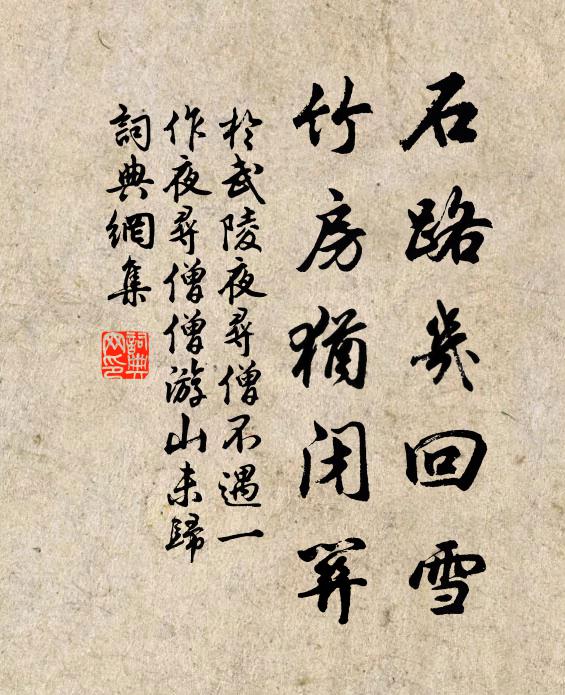 石路幾回雪
竹房猶闭關
於武陵夜尋僧不遇一
作夜尋僧僧游山未歸
詞典網集
詞典网印